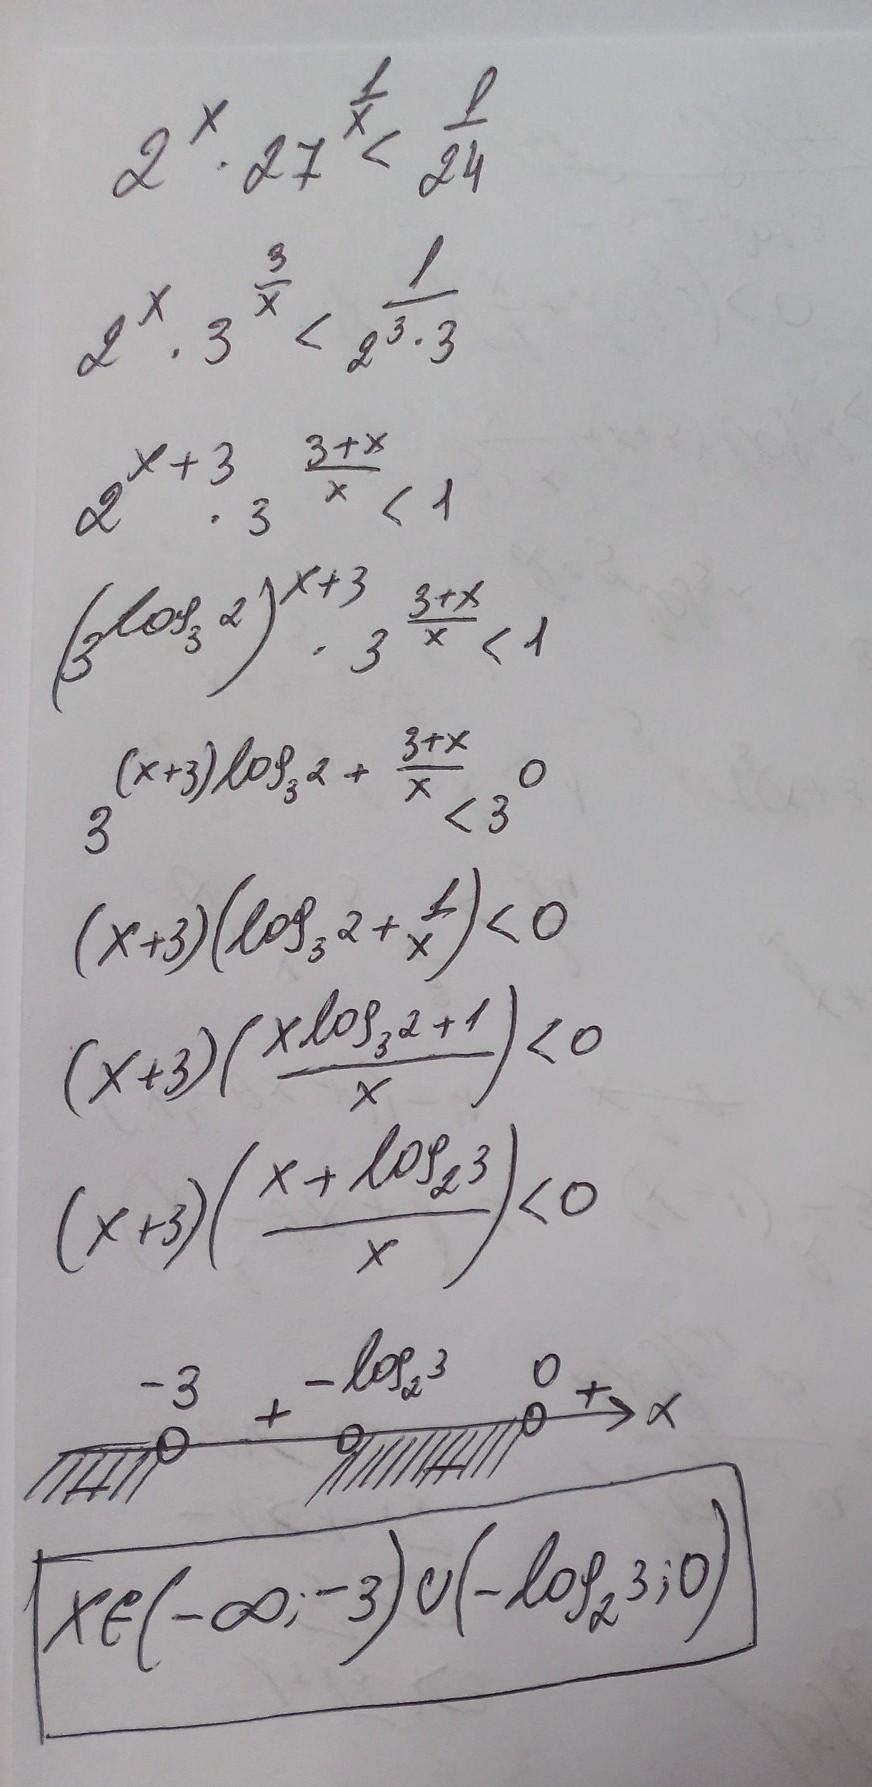 2^x · 27^(1/x) < 1/24
2^x · 3^(3/x) < 1/(2^3 · 3)
2^(x+3) · 3^((3+x)/x) < 1
(3^(log_3 2))^(x+3) · 3^((3+x)/x) < 1
3^((x+3)log_3 2 + (3+x)/x) < 3^0
(x+3)(log_3 2 + 1/x) < 0
(x+3)((x log_3 2 + 1)/x) < 0
(x+3)((x + log_2 3)/x) < 0
-3 + -log_2 3 0 + x
x∈(-∞;-3)∪(-log_2 3;0)